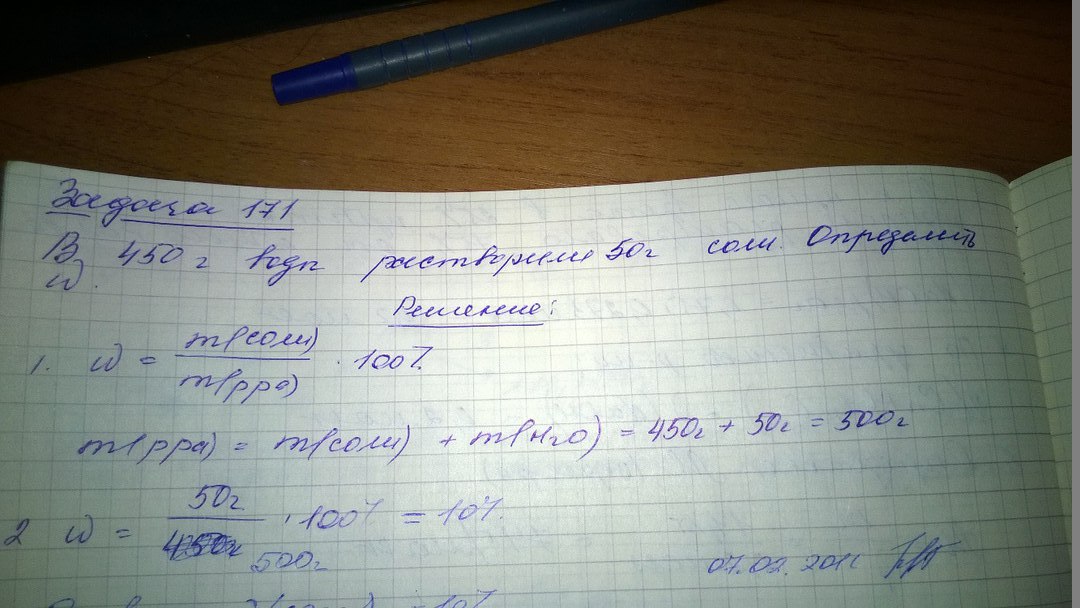 Задача 171
В 450 г воды растворили 50г соли. Определить
w.
Решение:
1. w = m(соли) / m(рра) · 100%
m(рра) = m(соли) + m(H2O) = 450г + 50г = 500г
2 w = 50г / 500г · 100% = 10%
07.02.
= 10%